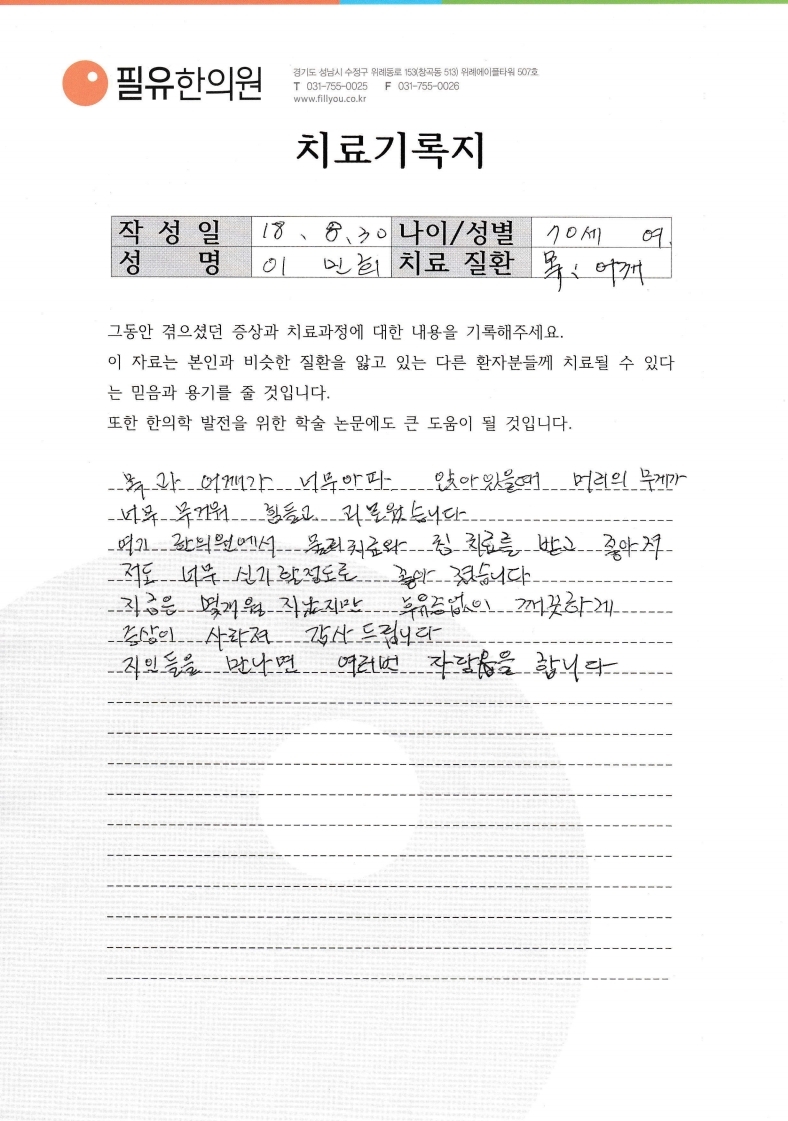 필유한의원
경기도 성남시 수정구 위례동로 153(창곡동 513) 위례에이플타워 507호
T 031-755-0025 F 031-755-0026
www.fillyou.co.kr
치료기록지
작 성 일 18、8、30 나이/성별 70세 여.
성 명 이 민희 치료 질환 목; 어깨
그동안 겪으셨던 증상과 치료과정에 대한 내용을 기록해주세요.
이 자료는 본인과 비슷한 질환을 앓고 있는 다른 환자분들께 치료될 수 있다
는 믿음과 용기를 줄 것입니다.
또한 한의학 발전을 위한 학술 논문에도 큰 도움이 될 것입니다.
목 과 어깨가 너무아파 앉아있을때 머리의 무게가
너무 무거워 힘들고 괴로웠습니다
여기 한의원에서 물리치료와 침 치료를 받고 좋아져
저도 너무 신기할정도로 좋아 졌습니다
지금은 몇개월 지났지만 후유증없이 깨끗하게
증상이 사라져 감사 드립니다
지인들을 만나면 여러번 자랑을 합니다